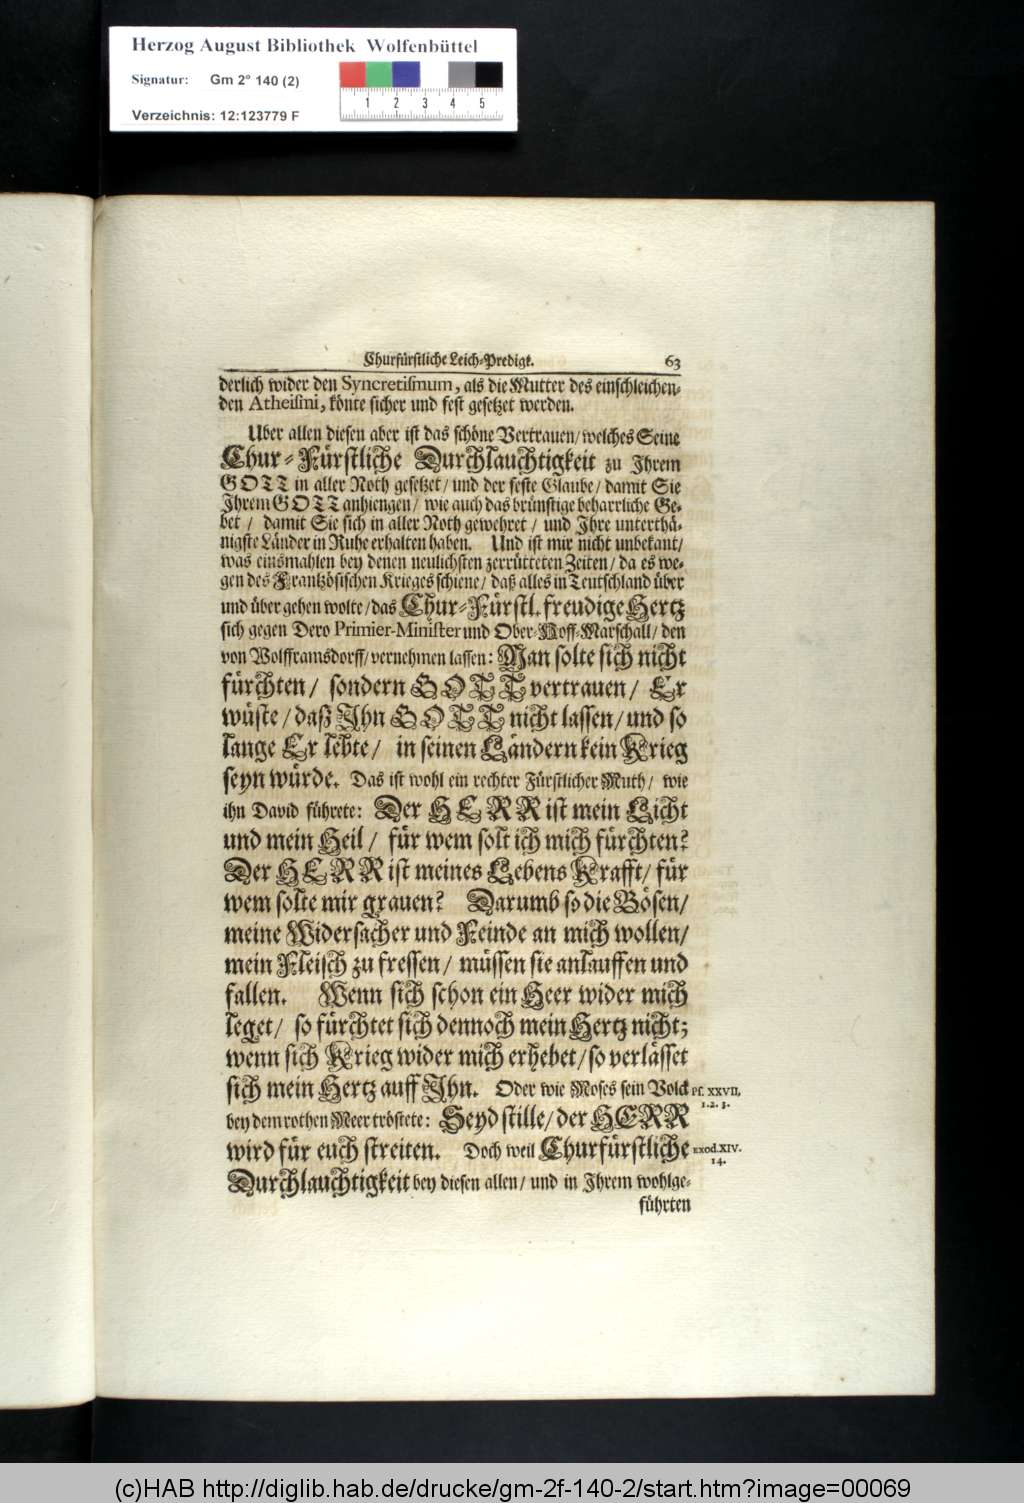 Herzog August Bibliothek Wolfenbüttel
Signatur: Gm 2° 140 (2)
Verzeichnis: 12:123779 F
1 2 3 4 5
Churfürstliche Leich-Predigt. 63
derlich wider den Syncretismum, als die Mutter des einschleichen-
den Atheismi, könte sicher und fest gesetzet werden.
Uber allen diesen aber ist das schöne Vertrauen/ welches Seine
Chur-Fürstliche Durchlauchtigkeit zu Ihrem
GOTT in aller Noth gesetzet/ und der feste Glaube/ damit Sie
Ihrem GOTT anhiengen/ wie auch das brünstige beharrliche Ge-
bet/ damit Sie sich in aller Noth gewehret/ und Ihre unterthä-
nigste Länder in Ruhe erhalten haben. Und ist mir nicht unbekant/
was einsmahlen bey denen neulichsten zerrütteten Zeiten/ da es we-
gen des Frantzösischen Krieges schiene/ daß alles in Teutschland über
und über gehen wolte/ das Chur-Fürstl. freudige Hertz
sich gegen Dero Primier-Minister und Ober-Hoff-Marschall/ den
von Wolfframsdorff/ vernehmen lassen: Man solte sich nicht
fürchten/ sondern GOTT vertrauen/ Er
wüste/ daß Ihn GOTT nicht lassen/ und so
lange Er lebte/ in seinen Ländern kein Krieg
seyn würde. Das ist wohl ein rechter Fürstlicher Muth/ wie
ihn David führete: Der HERR ist mein Licht
und mein Heil/ für wem solt ich mich fürchten?
Der HERR ist meines Lebens Krafft/ für
wem solte mir grauen? Darumb so die Bösen/
meine Widersacher und Feinde an mich wollen/
mein Fleisch zu fressen/ müssen sie anlauffen und
fallen. Wenn sich schon ein Heer wider mich
leget/ so fürchtet sich dennoch mein Hertz nicht;
wenn sich Krieg wider mich erhebet/ so verlässet
sich mein Hertz auff Ihn. Oder wie Moses sein Volck Ps. XXVII.
1. 2. 3.
bey dem rothen Meer tröstete: Seyd stille/ der HERR
wird für euch streiten. Doch weil Churfürstliche Exod. XIV.
14.
Durchlauchtigkeit bey diesen allen/ und in Ihrem wohlge-
führten
(c)HAB http://diglib.hab.de/drucke/gm-2f-140-2/start.htm?image=00069